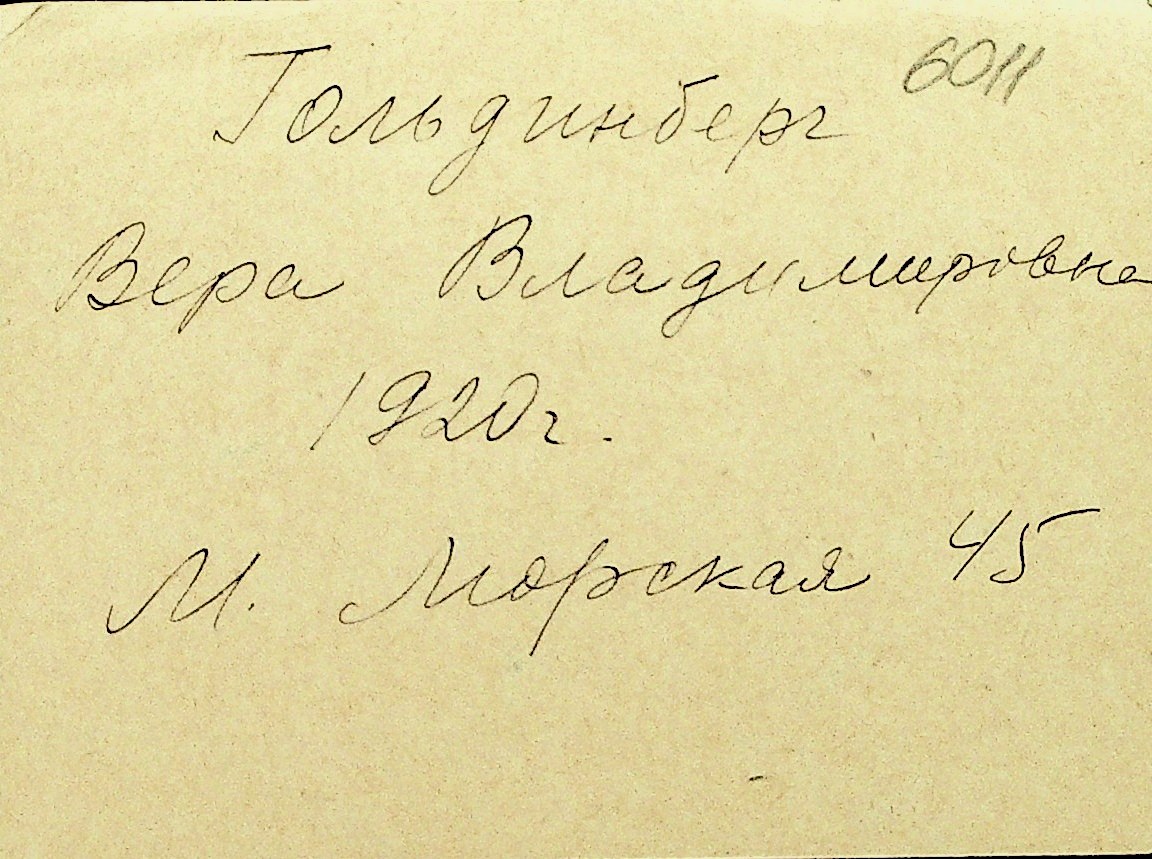 6011
Гольдинберг
Вера Владимировна
1920г.
М. Морская 45